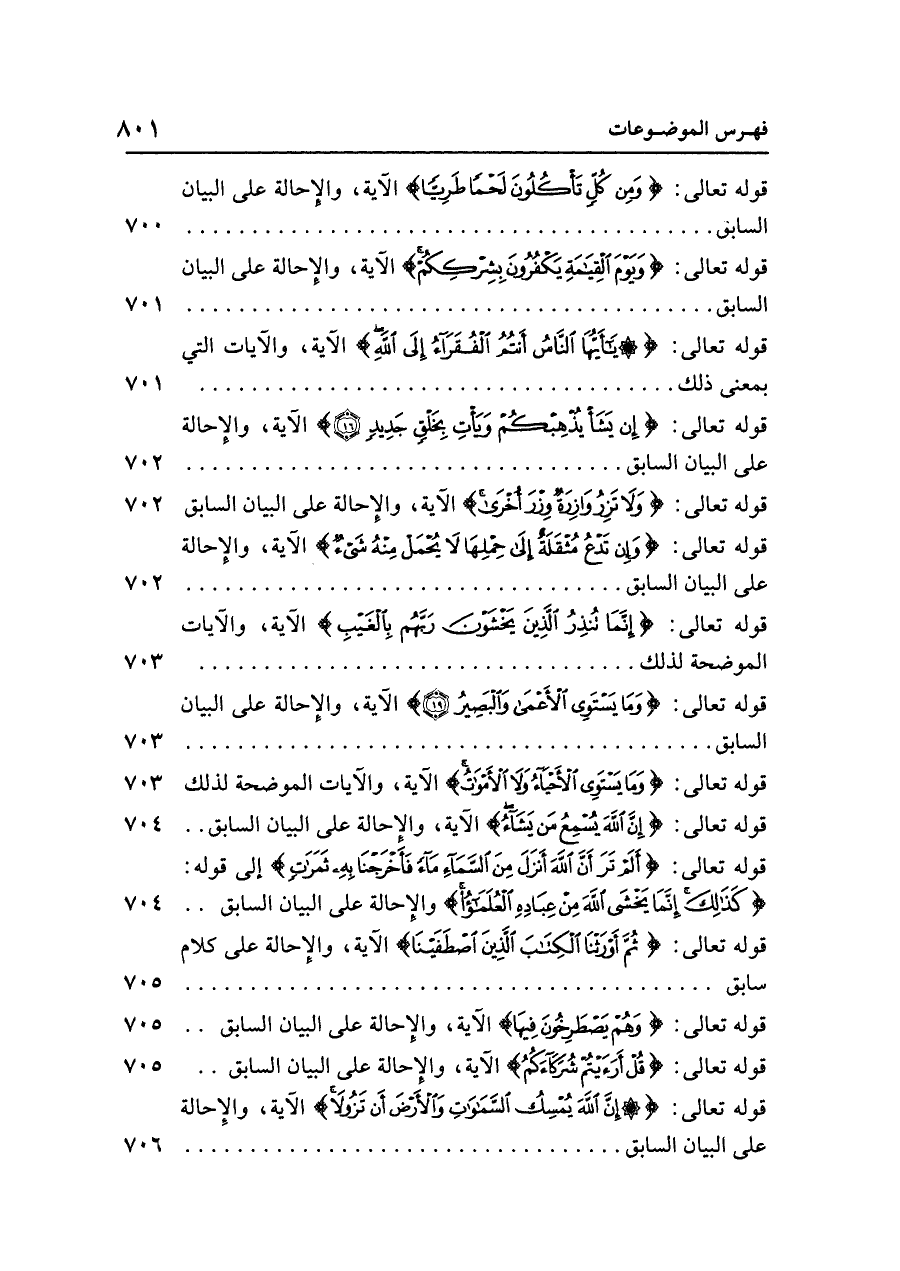 فهـرس الموضـوعات ٨٠١
قوله تعالى: ﴿ وَمِن كُلٍّ تَأْكُلُونَ لَحْمًا طَرِيًّا﴾ الآية، والإحالة على البيان
السابق. . . . . . . . . . . . . . . . . . . . . . . . . . . . . . . . . . . . . . . . ٧٠٠
قوله تعالى: ﴿ وَيَوْمَ ٱلْقِيَـٰمَةِ يَكْفُرُونَ بِشِرْكِكُمْۚ﴾ الآية، والإحالة على البيان
السابق. . . . . . . . . . . . . . . . . . . . . . . . . . . . . . . . . . . . . . . . ٧٠١
قوله تعالى: ﴿ ۞يَـٰٓأَيُّهَا ٱلنَّاسُ أَنتُمُ ٱلْفُقَرَآءُ إِلَى ٱللَّهِۖ﴾ الآية، والآيات التي
بمعنى ذلك. . . . . . . . . . . . . . . . . . . . . . . . . . . . . . . . . . . . . ٧٠١
قوله تعالى: ﴿ إِن يَشَأْ يُذْهِبْكُمْ وَيَأْتِ بِخَلْقٍ جَدِيدٍ ١٦﴾ الآية، والإحالة
على البيان السابق. . . . . . . . . . . . . . . . . . . . . . . . . . . . . . . . . ٧٠٢
قوله تعالى: ﴿ وَلَا تَزِرُ وَازِرَةٌ وِزْرَ أُخْرَىٰۚ﴾ الآية، والإحالة على البيان السابق ٧٠٢
قوله تعالى: ﴿ وَإِن تَدْعُ مُثْقَلَةٌ إِلَىٰ حِمْلِهَا لَا يُحْمَلْ مِنْهُ شَىْءٌ﴾ الآية، والإحالة
على البيان السابق. . . . . . . . . . . . . . . . . . . . . . . . . . . . . . . . . ٧٠٢
قوله تعالى: ﴿ إِنَّمَا تُنذِرُ ٱلَّذِينَ يَخْشَوْنَ رَبَّهُم بِٱلْغَيْبِ﴾ الآية، والآيات
الموضحة لذلك. . . . . . . . . . . . . . . . . . . . . . . . . . . . . . . . . . ٧٠٣
قوله تعالى: ﴿ وَمَا يَسْتَوِى ٱلْأَعْمَىٰ وَٱلْبَصِيرُ ١٩﴾ الآية، والإحالة على البيان
السابق. . . . . . . . . . . . . . . . . . . . . . . . . . . . . . . . . . . . . . . . ٧٠٣
قوله تعالى: ﴿ وَمَا يَسْتَوِى ٱلْأَحْيَآءُ وَلَا ٱلْأَمْوَٰتُۚ﴾ الآية، والآيات الموضحة لذلك ٧٠٣
قوله تعالى: ﴿ إِنَّ ٱللَّهَ يُسْمِعُ مَن يَشَآءُۖ﴾ الآية، والإحالة على البيان السابق. . ٧٠٤
قوله تعالى: ﴿ أَلَمْ تَرَ أَنَّ ٱللَّهَ أَنزَلَ مِنَ ٱلسَّمَآءِ مَآءً فَأَخْرَجْنَا بِهِۦ ثَمَرَٰتٍ﴾ إلى قوله:
﴿ كَذَٰلِكَۗ إِنَّمَا يَخْشَى ٱللَّهَ مِنْ عِبَادِهِ ٱلْعُلَمَـٰٓؤُاْۗ﴾ والإحالة على البيان السابق . . ٧٠٤
قوله تعالى: ﴿ ثُمَّ أَوْرَثْنَا ٱلْكِتَـٰبَ ٱلَّذِينَ ٱصْطَفَيْنَا﴾ الآية، والإحالة على كلام
سابق . . . . . . . . . . . . . . . . . . . . . . . . . . . . . . . . . . . . . . . . . ٧٠٥
قوله تعالى: ﴿ وَهُمْ يَصْطَرِخُونَ فِيهَا﴾ الآية، والإحالة على البيان السابق . . ٧٠٥
قوله تعالى: ﴿ قُلْ أَرَءَيْتُمْ شُرَكَآءَكُمُ﴾ الآية، والإحالة على البيان السابق . . ٧٠٥
قوله تعالى: ﴿ ۞إِنَّ ٱللَّهَ يُمْسِكُ ٱلسَّمَـٰوَٰتِ وَٱلْأَرْضَ أَن تَزُولَاۚ﴾ الآية، والإحالة
على البيان السابق. . . . . . . . . . . . . . . . . . . . . . . . . . . . . . . . . ٧٠٦